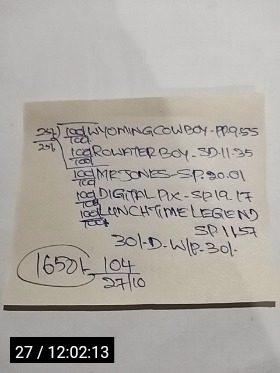 25/ 100/100 WYOMING COWBOY - PP 9.55
25/ 100/100 ROWATER BOY - SD.11-35
100/100 MR JONES - SP.20.01
100/100 DIGITAL PIX - SP 19.17
100/100 LUNCHTIME LEGEND
SP 1157
30/-D-W/P-30/-
1650/- 104
27/10
27 / 12:02:13